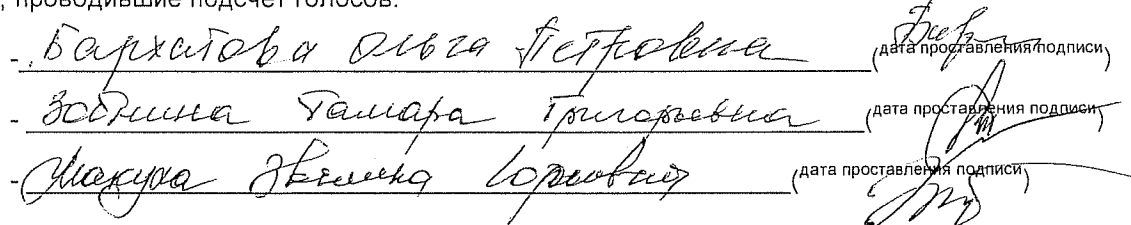 , проводившие подсчет голосов:
- Бархатова Ольга Петровна (дата проставления подписи)
- Тамара Григорьевна (дата проставления подписи)
- Эвелина (дата проставления подписи)